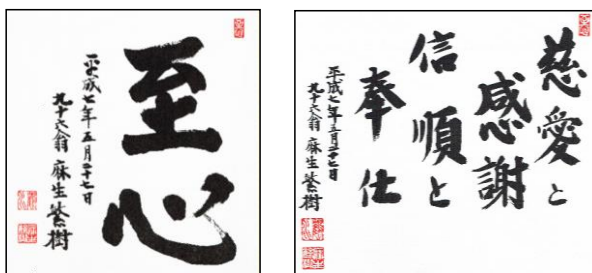 至心
平成七年五月二十七日
九十六翁 麻生繁樹
慈愛と
感謝
信順と
奉仕
平成七年五月二十七日
九十六翁 麻生繁樹